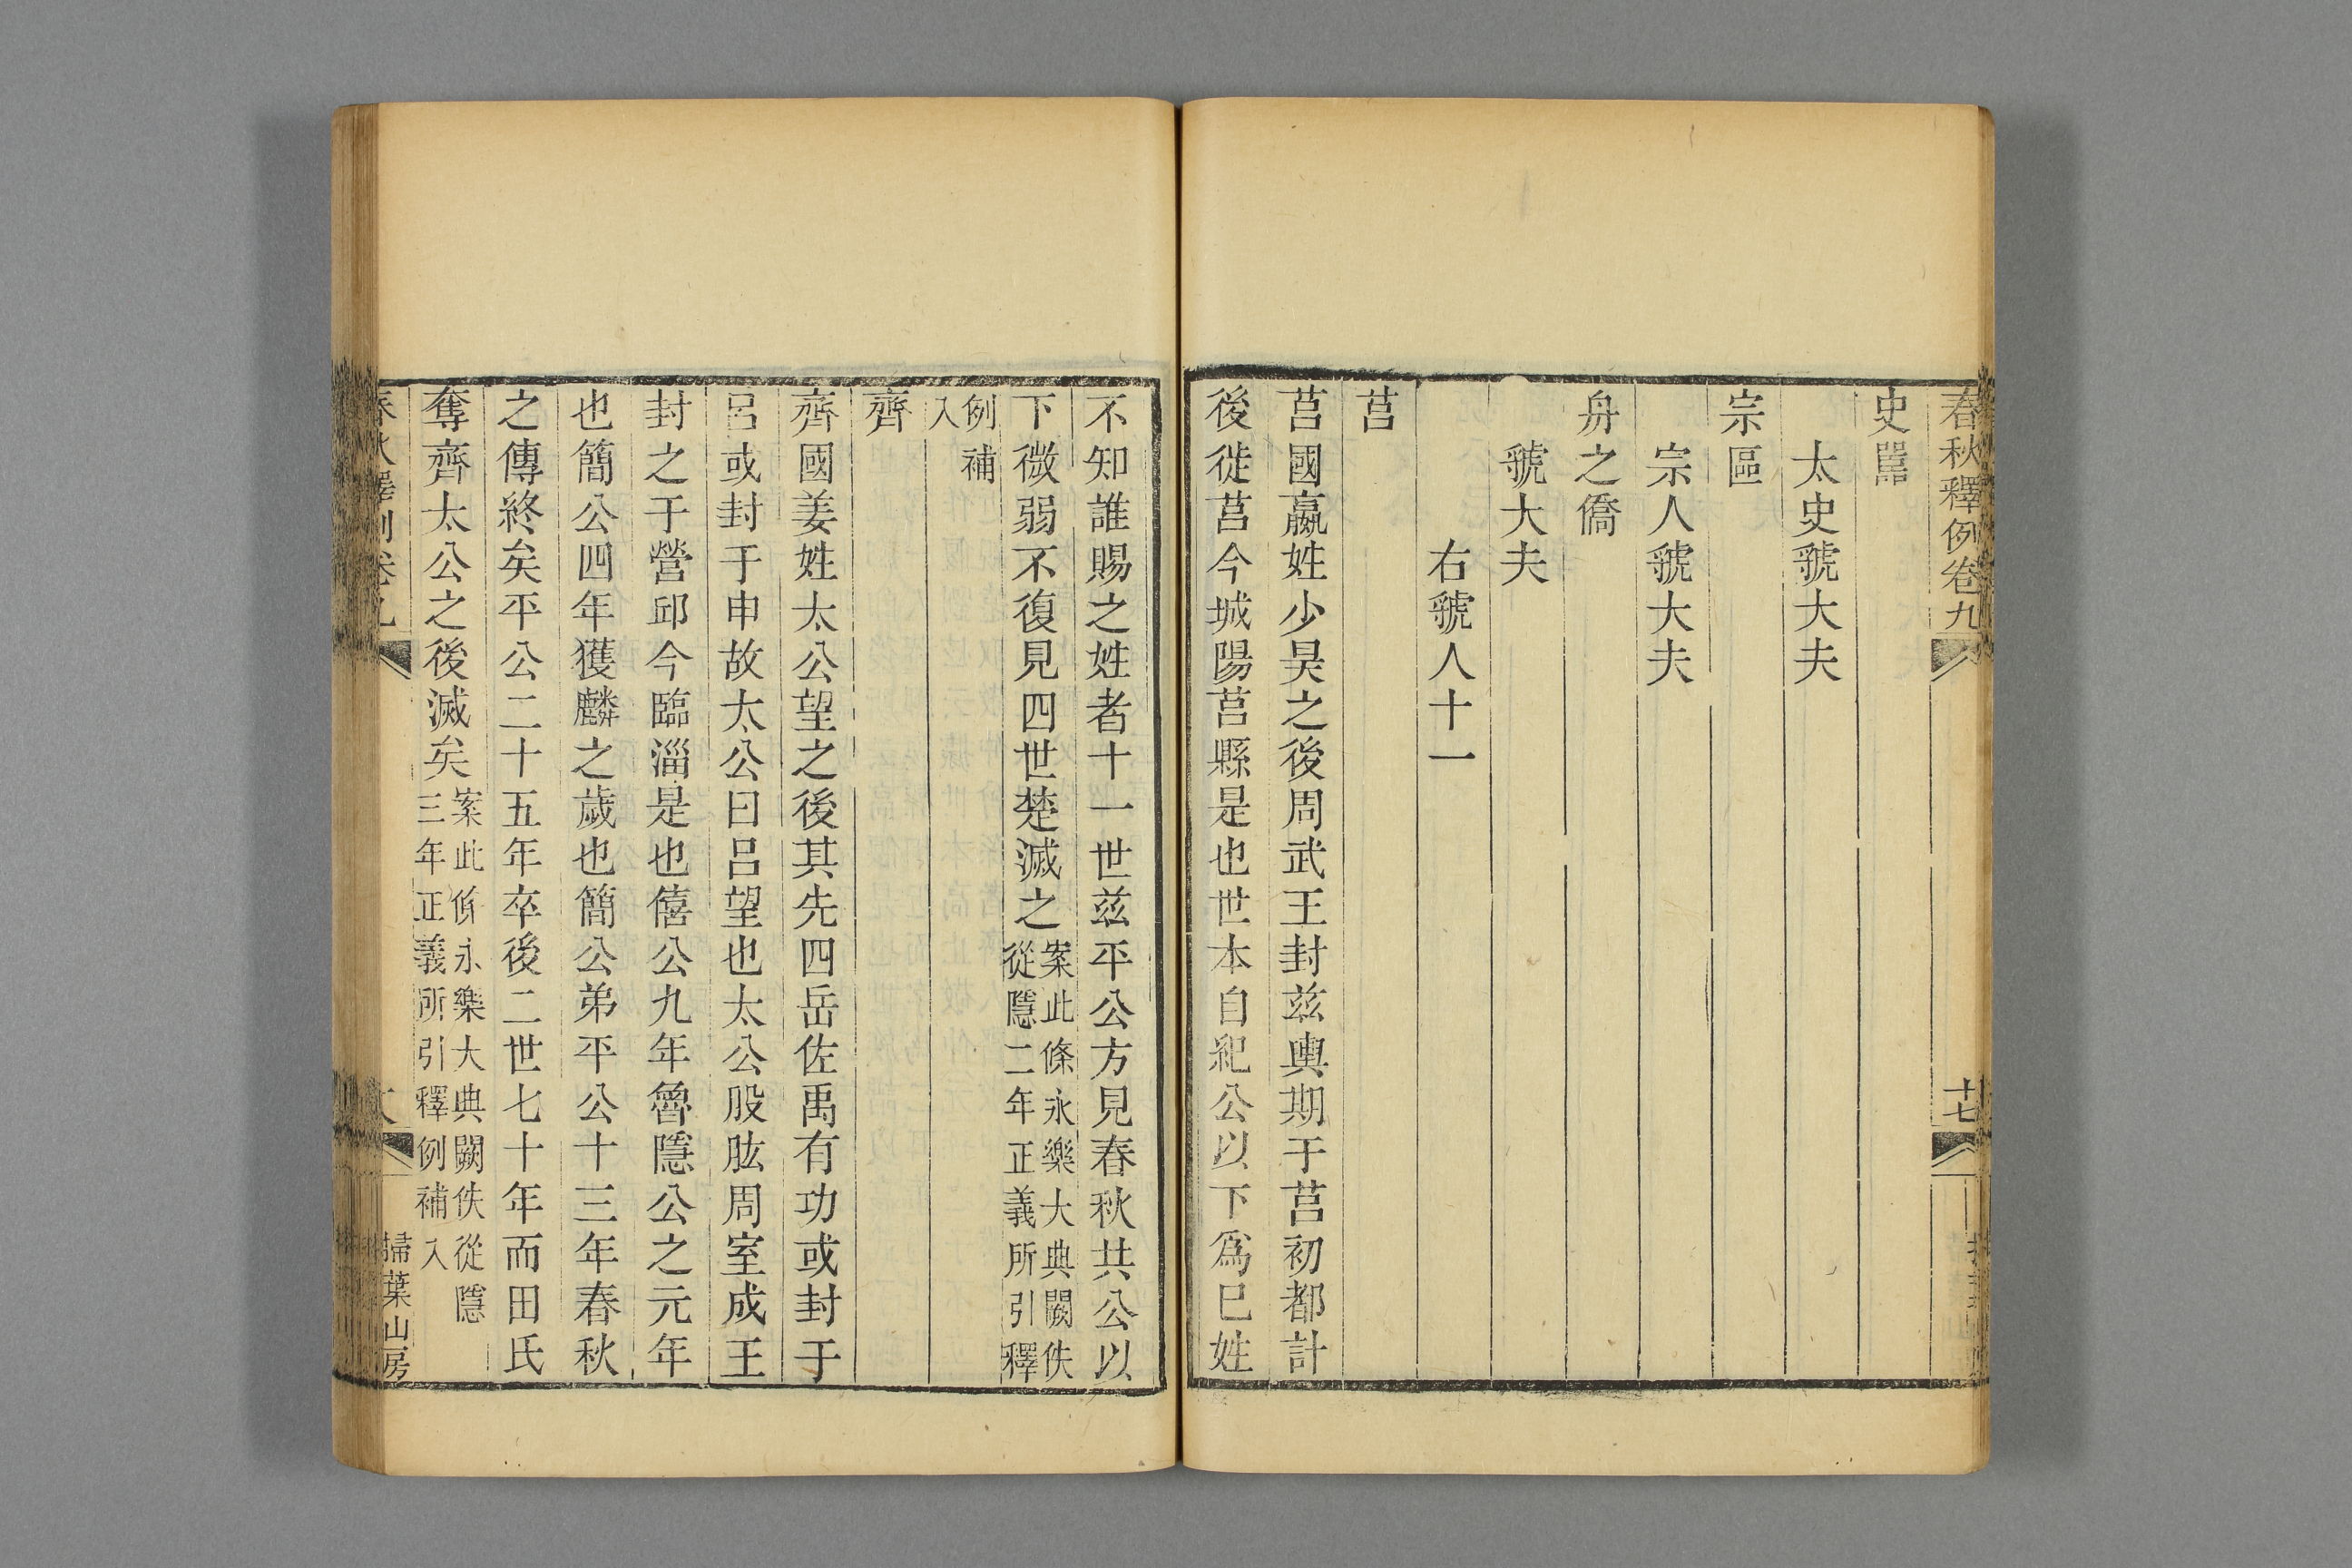 春秋釋例卷九
十七
史嚚
太史虢大夫
宗區
宗人虢大夫
舟之僑
虢大夫
右虢人十一
莒
莒國嬴姓少昊之後周武王封茲輿期于莒初都計
後徙莒今城陽莒縣是也世本自紀公以下爲巳姓
不知誰賜之姓者十一世茲平公方見春秋共公以
下微弱不復見四世楚滅之
案此條永樂大典闕佚
從隱二年正義所引釋
例補
入
齊
齊國姜姓太公望之後其先四岳佐禹有功或封于
呂或封于申故太公曰呂望也太公股肱周室成王
封之于營邱今臨淄是也僖公九年魯隱公之元年
也簡公四年獲麟之歲也簡公弟平公十三年春秋
之傳終矣平公二十五年卒後二世七十年而田氏
奪齊太公之後滅矣
案此條永樂大典闕佚從隱
三年正義所引釋例補入
掃葉山房